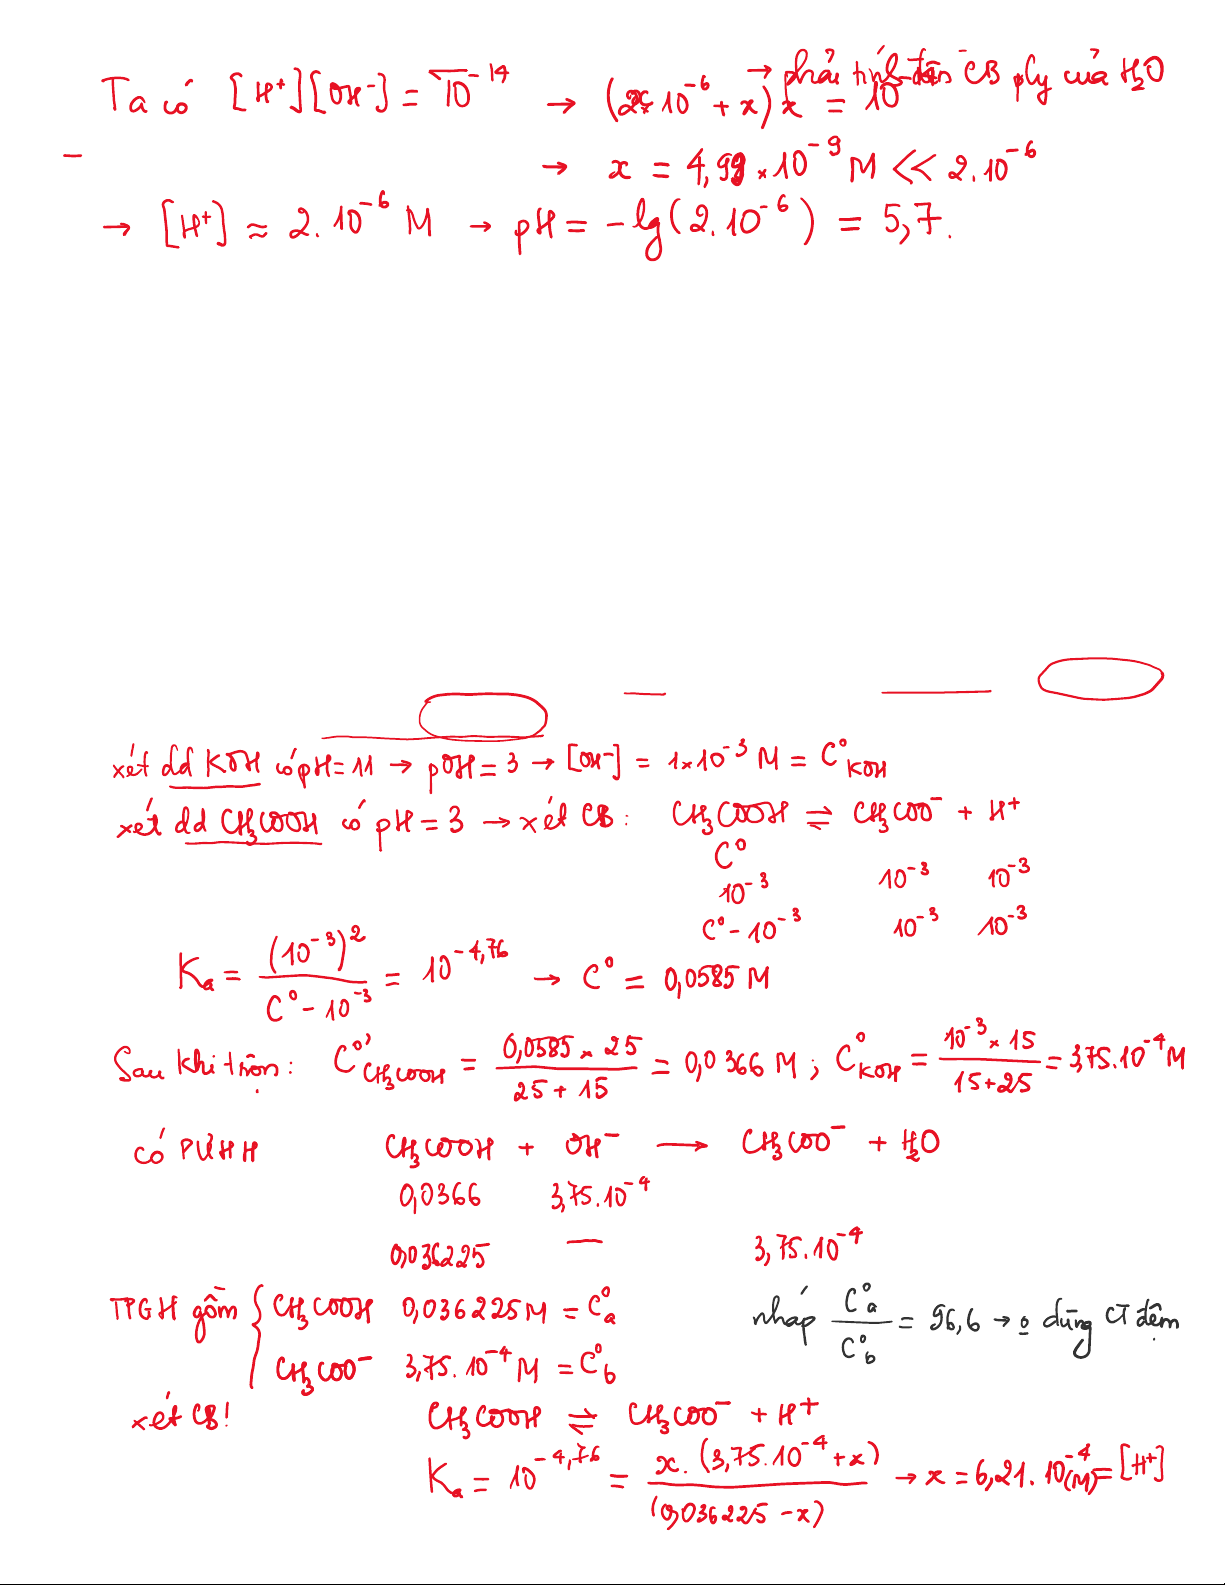 → phải tính đến CB ply của H₂O
Ta có [H⁺][OH⁻] = 10⁻¹⁴ → (2.10⁻⁶ + x) x = 10⁻¹⁴
→ x = 4,99×10⁻⁹ M << 2.10⁻⁶
→ [H⁺] ≈ 2.10⁻⁶ M → pH = -lg(2.10⁻⁶) = 5,7.
xét dd KOH có pH = 11 → pOH = 3 → [OH⁻] = 1×10⁻³ M = C°KOH
xét dd CH₃COOH có pH = 3 → xét CB: CH₃COOH ⇌ CH₃COO⁻ + H⁺
C°
10⁻³ 10⁻³ 10⁻³
C° - 10⁻³ 10⁻³ 10⁻³
Kₐ = (10⁻³)² / (C° - 10⁻³) = 10⁻⁴,⁷⁶ → C° = 0,0585 M
Sau khi trộn: C°'CH₃COOH = (0,0585 × 25) / (25 + 15) = 0,0366 M ; C°KOH = (10⁻³ × 15) / (15+25) = 3,75.10⁻⁴ M
có PƯHH CH₃COOH + OH⁻ → CH₃COO⁻ + H₂O
0,0366 3,75.10⁻⁴
0,036225 — 3,75.10⁻⁴
TPGH gồm { CH₃COOH 0,036225 M = C°a
CH₃COO⁻ 3,75.10⁻⁴ M = C°b
nháp C°a / C°b = 96,6 → o dùng CT đệm
xét CB! CH₃COOH ⇌ CH₃COO⁻ + H⁺
Kₐ = 10⁻⁴,⁷⁶ = x.(3,75.10⁻⁴ + x) / (0,036225 - x) → x = 6,21.10⁻⁴ (M) = [H⁺]